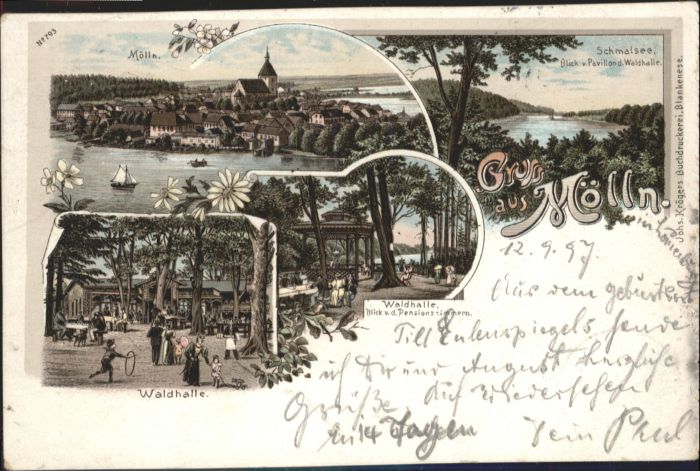 No 793
Mölln.
Schmalsee.
Blick v. Pavillon d. Waldhalle.
Gruss
aus
Mölln.
Johs. Krögers Buchdruckerei, Blankenese.
Waldhalle,
Blick v. d. Pensionszimmern.
Waldhalle.
12.9.97.
Aus dem Geburtsort
Till Eulenspiegels sende
ich Dir und August herzliche
Grüße Auf Wiedersehen
in 14 Tagen Dein Paul